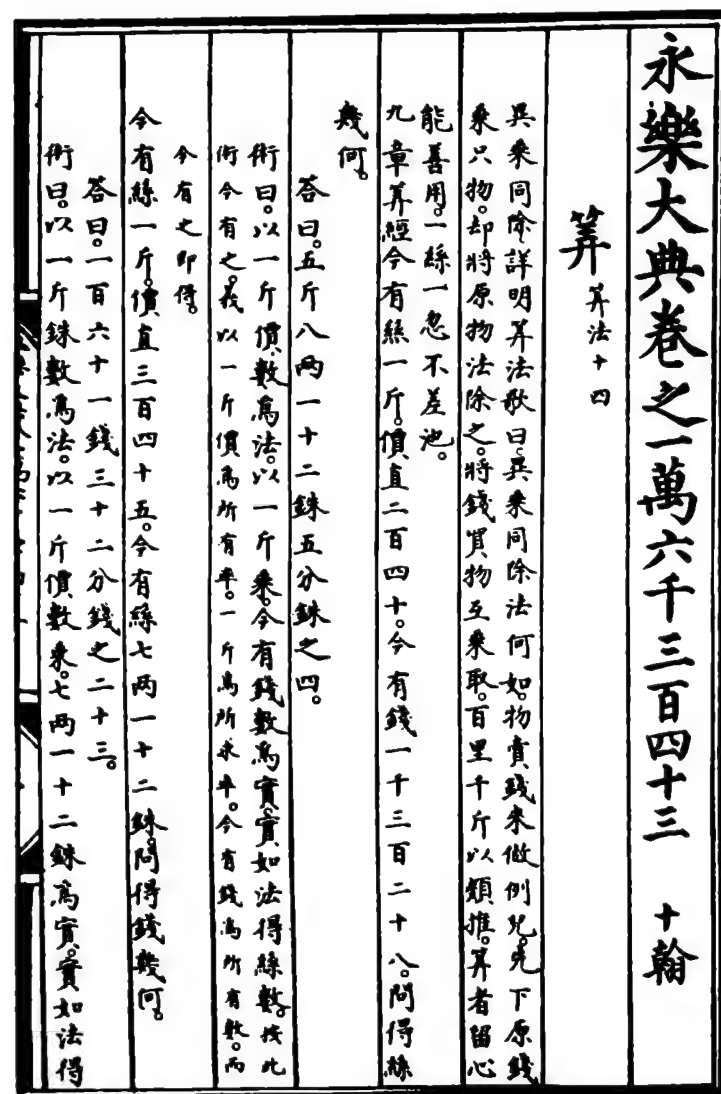 永樂大典卷之一萬六千三百四十三　十翰
筭　筭法十四
異乘同除詳明筭法歌曰。異乘同除法何如。物賣錢來做例兒。先下原錢
乘只物。却將原物法除之。將錢買物互乘取。百里千斤以類推。筭者留心
能善用。一絲一忽不差池。
九章筭經今有絲一斤。價直二百四十。今有錢一千三百二十八。問得絲
幾何。
荅曰。五斤八兩一十二銖五分銖之四。
術曰。以一斤價數爲法。以一斤乘。今有錢數爲實。實如法得絲數。按此
術今有之義。以一斤價爲所有率。一斤爲所求率。今有錢爲所有數。而
今有之即得。
今有絲一斤。價直三百四十五。今有絲七兩一十二銖。問得錢幾何。
荅曰。一百六十一錢三十二分錢之二十三。
術曰。以一斤銖數爲法。以一斤價數乘。七兩一十二銖爲實。實如法得